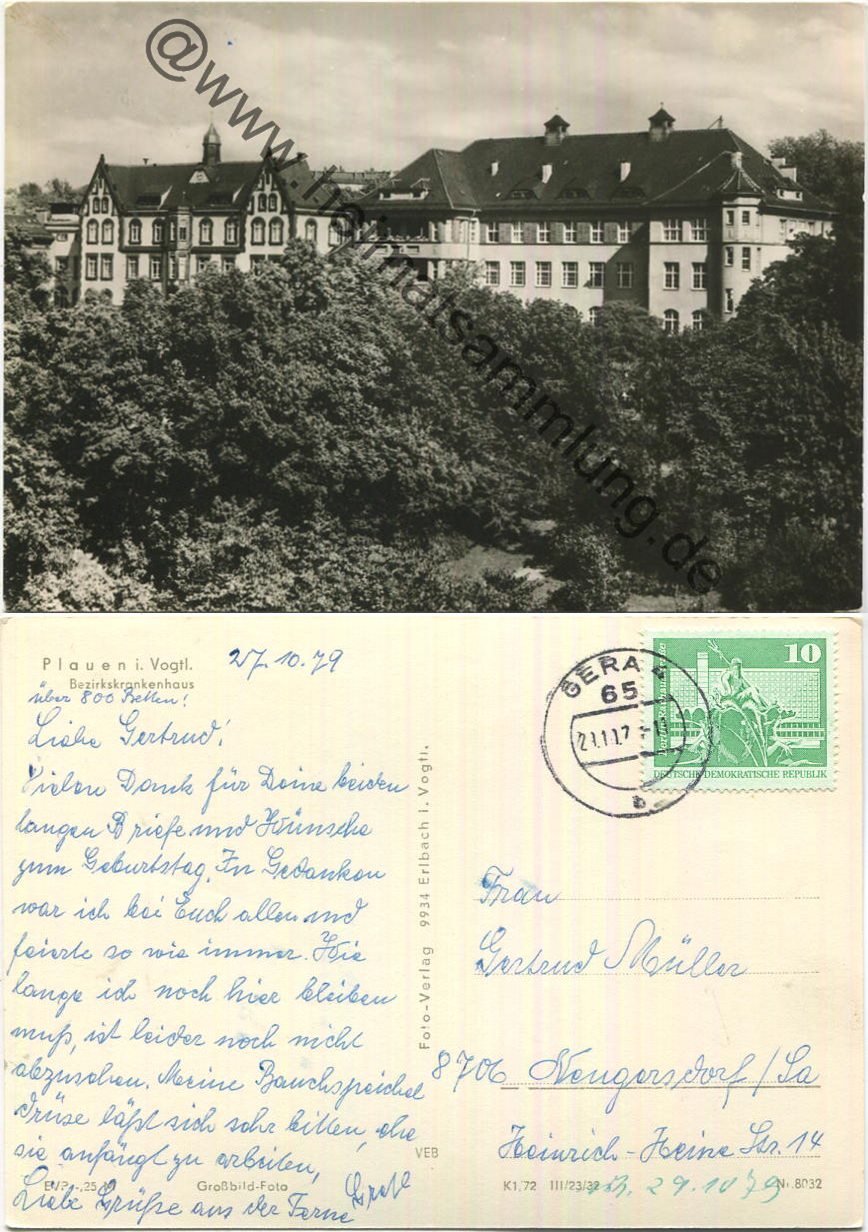 @www.heimatsammlung.de
Plauen i. Vogtl.
Bezirkskrankenhaus
27.10.79
über 800 Betten!
Liebe Gertrud!
Vielen Dank für Deine beiden
langen Briefe und Wünsche
zum Geburtstag. In Gedanken
war ich bei Euch allen und
feierte so wie immer. Wie
lange ich noch hier bleiben
muß, ist leider noch nicht
abzusehen. Meine Bauchspeichel
drüse läßt sich sehr bitten, ehe
sie anfängt zu arbeiten,
Liebe Grüße aus der Ferne
Großbild-Foto
Foto-Verlag 9934 Erlbach i. Vogtl.
VEB
GERA
65
b
10
Berlin-Rathausstraße
DEUTSCHE DEMOKRATISCHE REPUBLIK
Frau
Gertrud Müller
8706 Neugersdorf/Sa
Heinrich-Heine Str. 14
K1/72 III/23/32 Nr. 8032
29.10.79